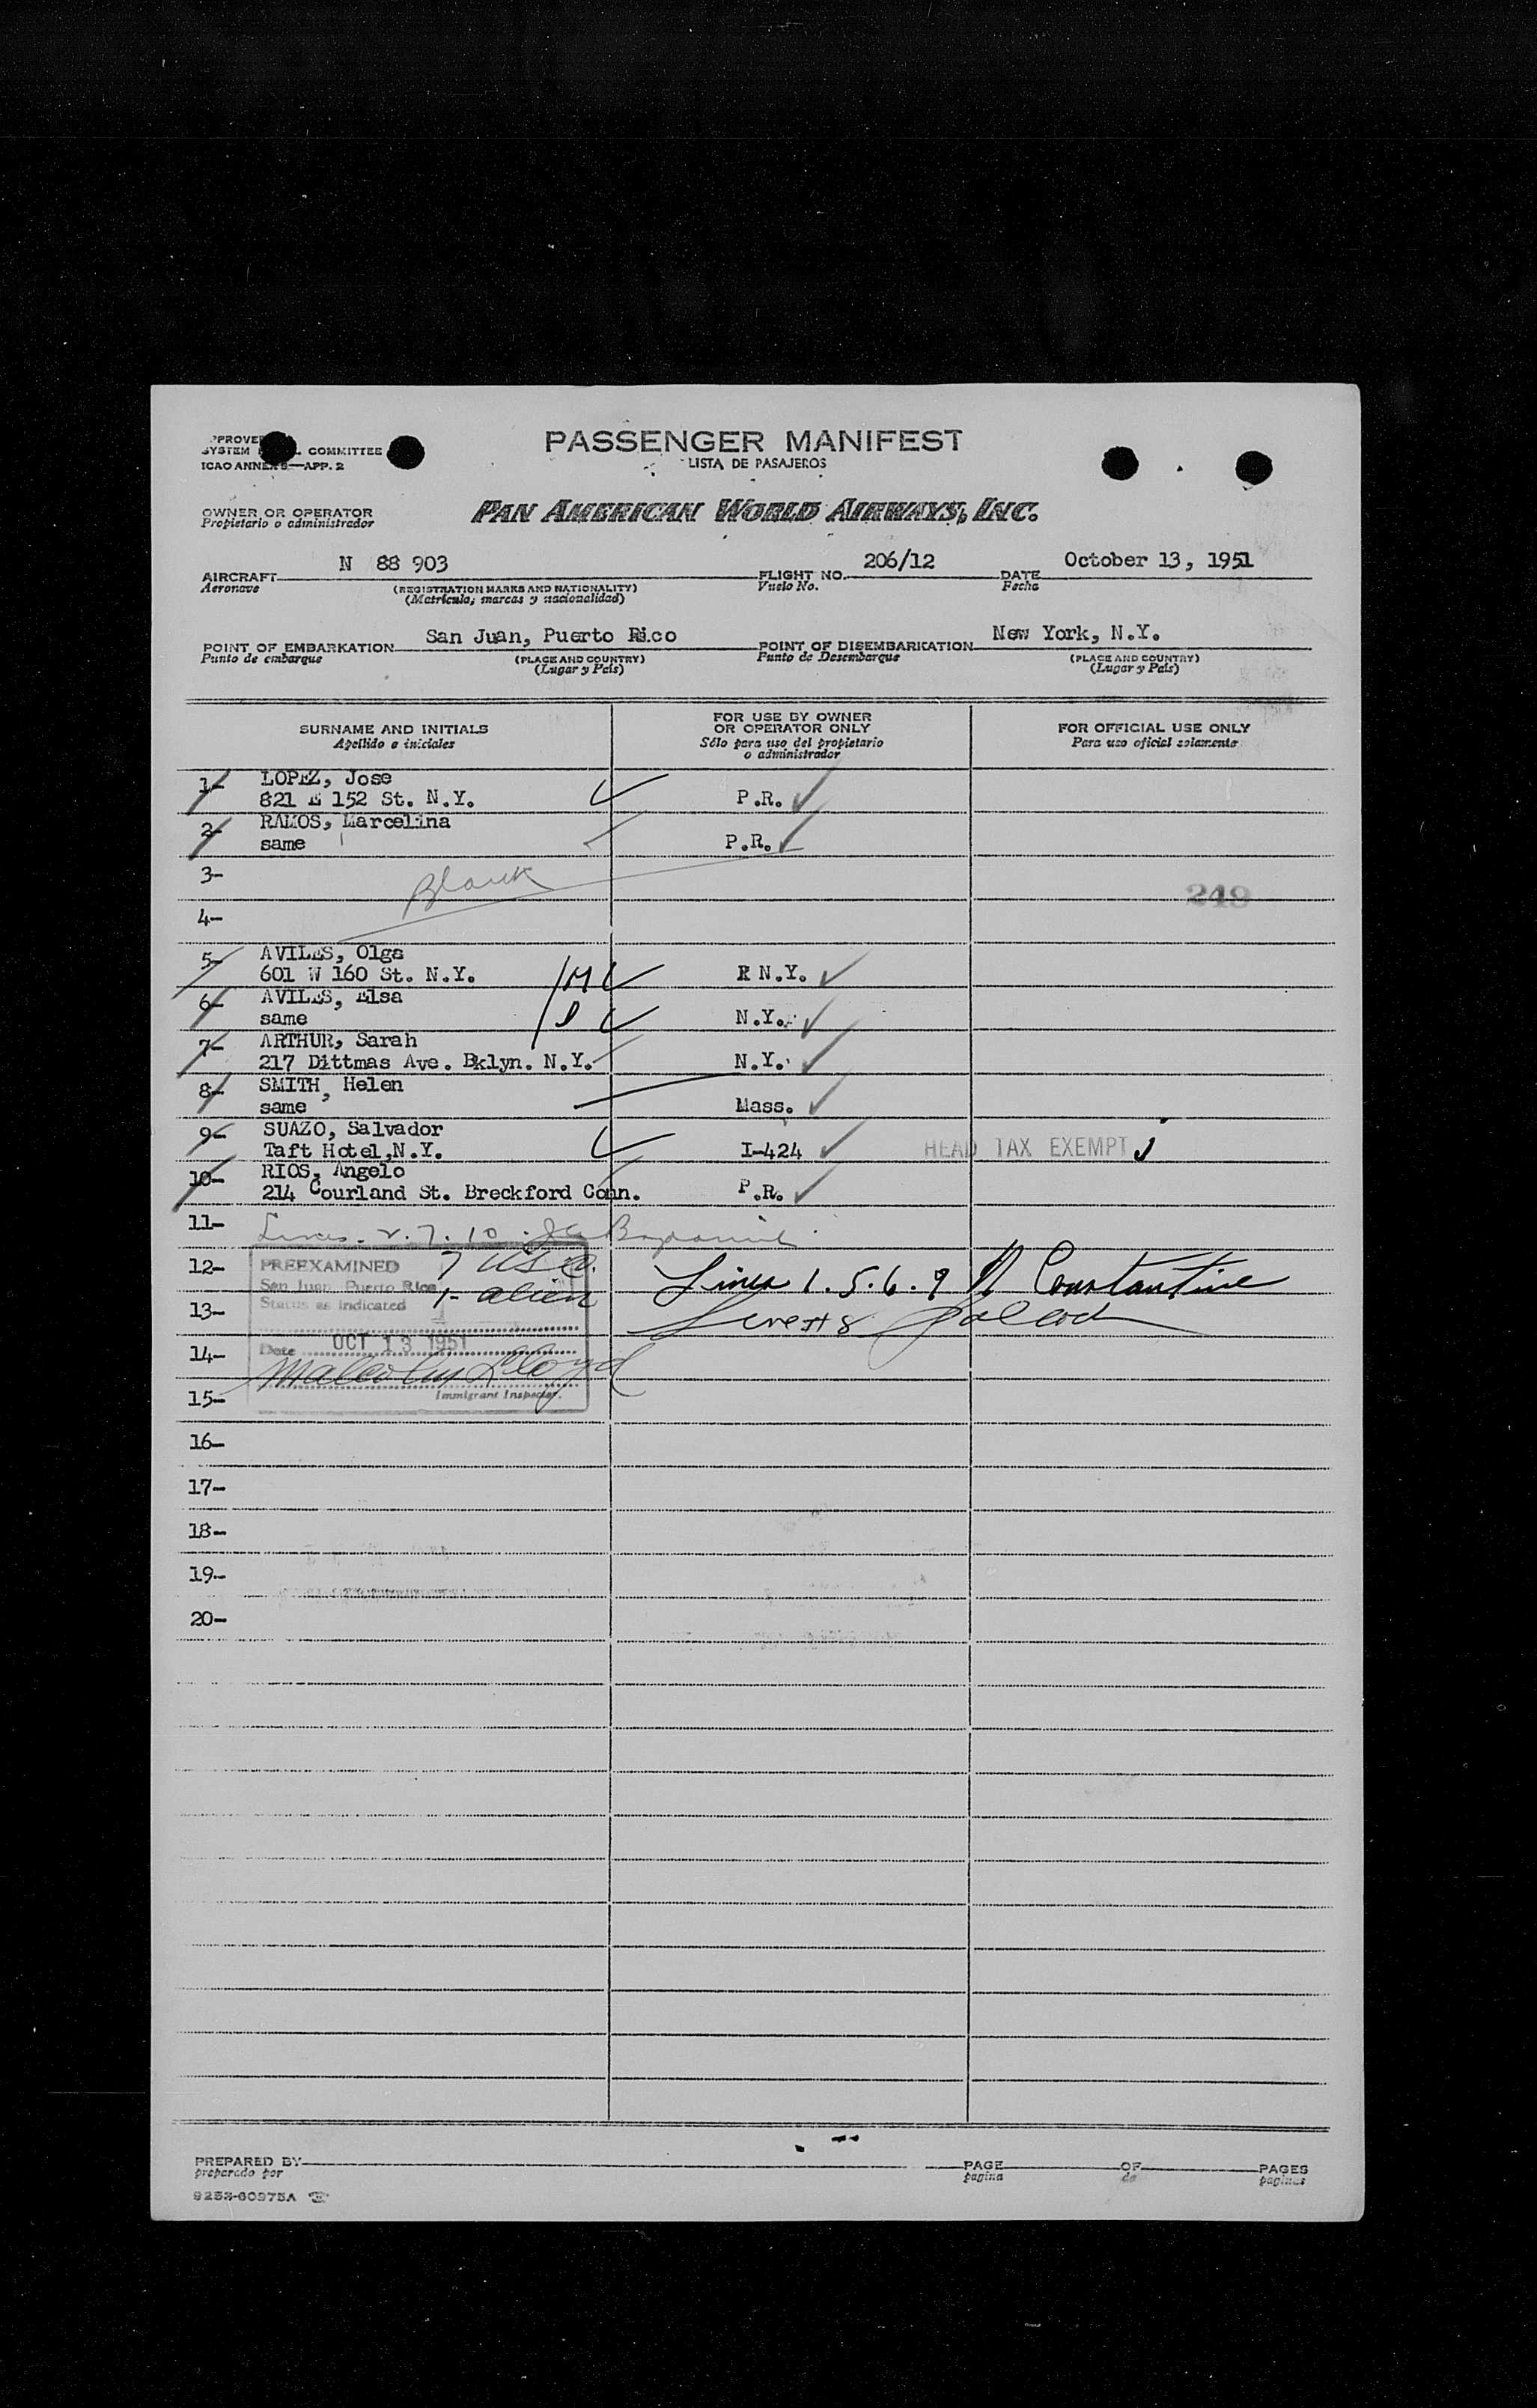 PASSENGER MANIFEST
LISTA DE PASAJEROS
SYSTEM COMMITTEE
ICAO ANNEX 9—APP. 2
OWNER OR OPERATOR
Propietario o administrador
PAN AMERICAN WORLD AIRWAYS, INC.
AIRCRAFT N 88 903 FLIGHT NO. 206/12 DATE October 13, 1951
Aeronave (REGISTRATION MARKS AND NATIONALITY) Vuelo No. Fecha
(Matrícula, marcas y nacionalidad)
POINT OF EMBARKATION San Juan, Puerto Rico POINT OF DISEMBARKATION New York, N.Y.
Punto de embarque (PLACE AND COUNTRY) Punto de Desembarque (PLACE AND COUNTRY)
(Lugar y País) (Lugar y País)
SURNAME AND INITIALS FOR USE BY OWNER OR OPERATOR ONLY FOR OFFICIAL USE ONLY
Apellido e iniciales Sólo para uso del propietario o administrador Para uso oficial solamente
1- LOPEZ, Jose
821 E 152 St. N.Y. P.R.
2- RAMOS, Marcelina
same P.R.
3- Blank
249
4-
5- AVILES, Olga
601 W 160 St. N.Y. M N.Y.
6- AVILES, Elsa
same D N.Y.
7- ARTHUR, Sarah
217 Dittmas Ave. Bklyn. N.Y. N.Y.
8- SMITH, Helen
same Mass.
9- SUAZO, Salvador
Taft Hotel, N.Y. I-424 HEAD TAX EXEMPT
10- RIOS, Angelo
214 Courland St. Breckford Conn. P.R.
11- Lines 2.7.10
12- PREEXAMINED 7 USC. Lines 1.5.6.9 Constantine
San Juan, Puerto Rico 1- alien
13- Status as indicated
14- Date OCT 13 1951
Malcolm Lloyd
15- Immigrant Inspector.
16-
17-
18-
19-
20-
PREPARED BY PAGE OF PAGES
preparado por pagina de paginas
9253-60975A